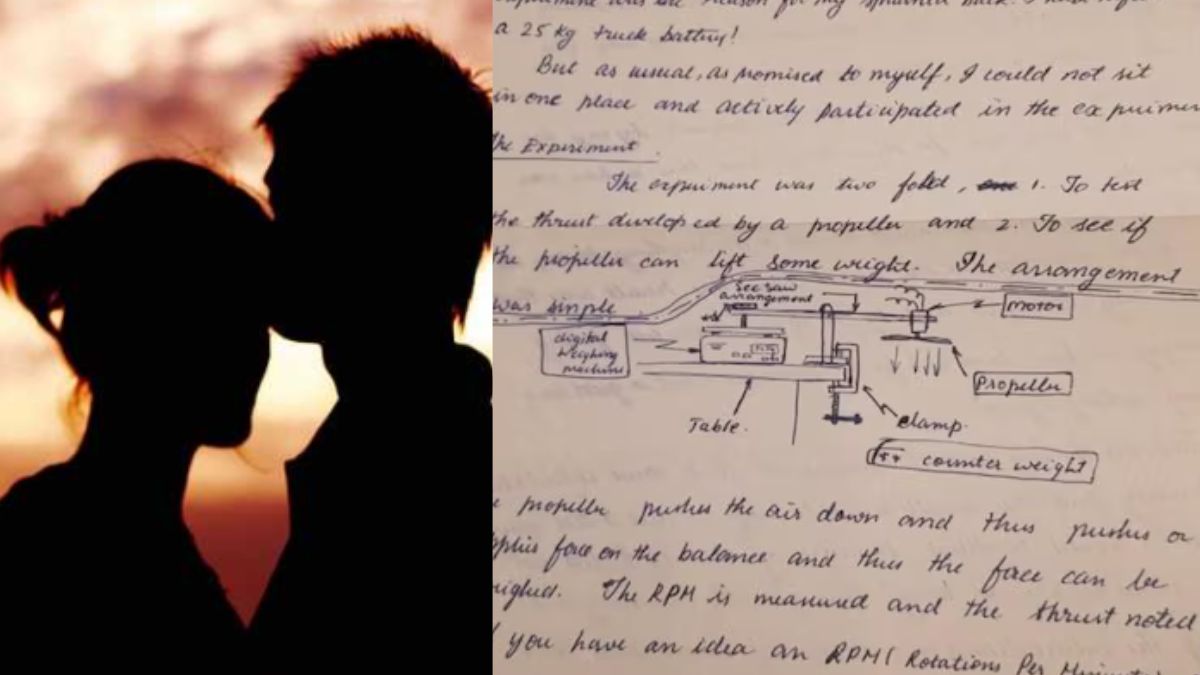 a 25 kg truck battery!
But as usual, as promised to myself, I could not sit
in one place and actively participated in the
the Experiment.
The experiment was two fold, 1. To test
the thrust developed by a propeller and 2. To see if
the propeller can lift some weight. The arrangement
was simple
See saw
arrangement
motor
digital
weighing
machine
Propeller
Table.
clamp.
counter weight
propeller pushes the air down and thus pushes or
force on the balance and thus the force can be
The RPM is measured and the thrust noted
you have an idea an RPM ( Rotations Per